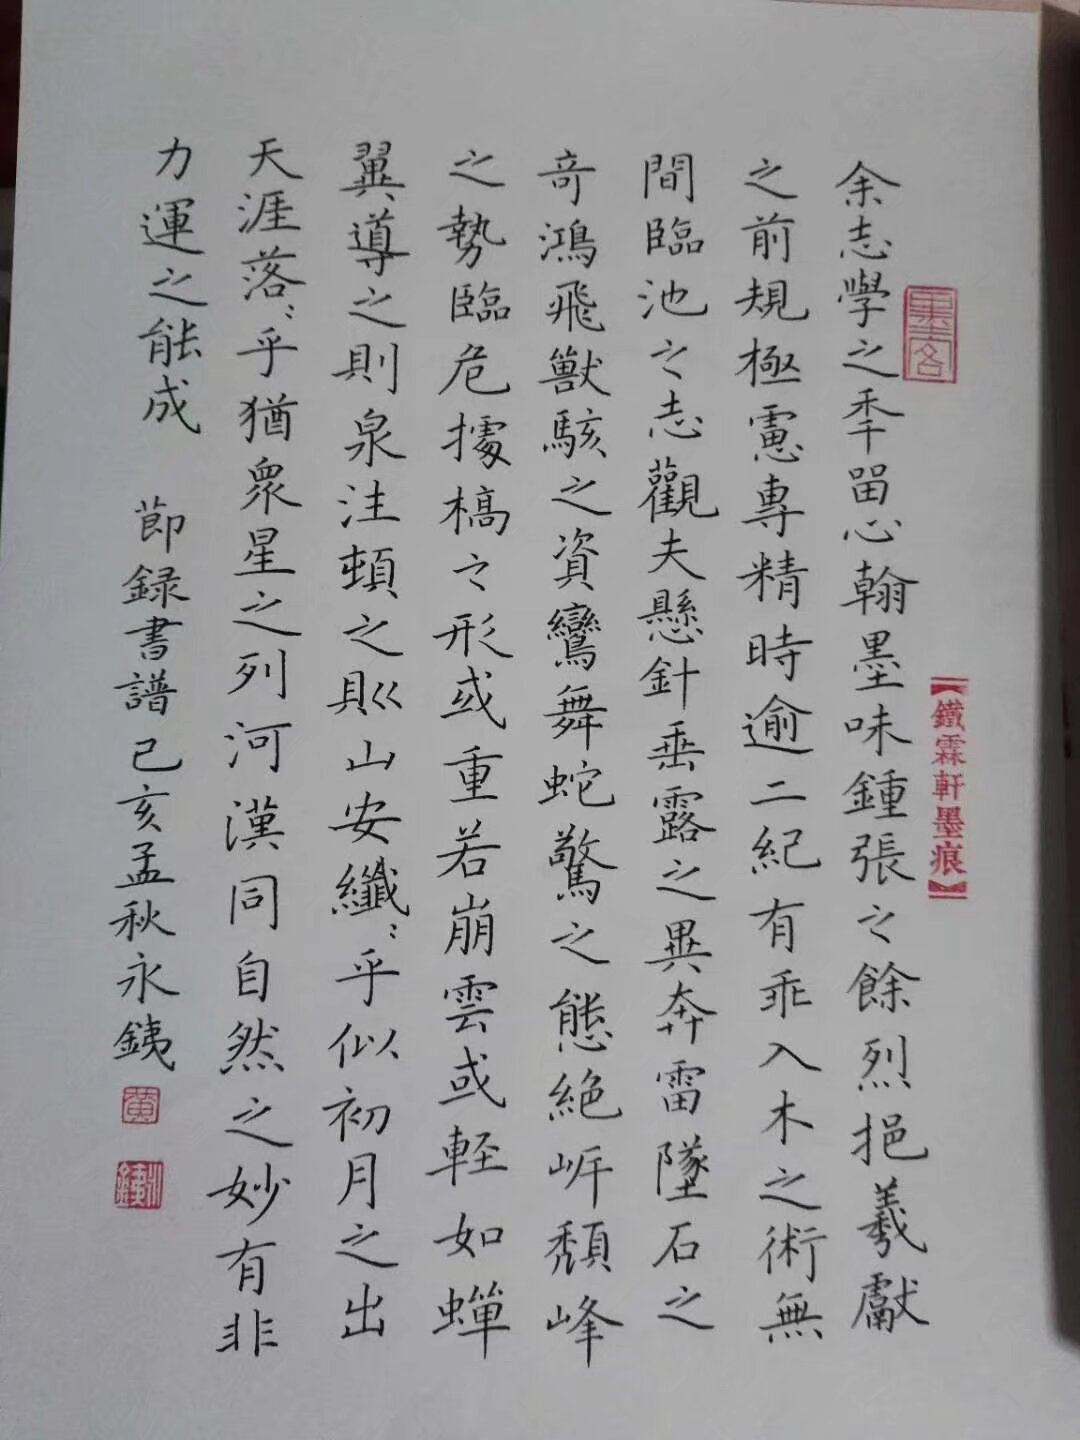 墨客
余志學之年留心翰墨味鍾張之餘烈挹羲獻
【鐵霖軒墨痕】
之前規極慮專精時逾二紀有乖入木之術無
間臨池之志觀夫懸針垂露之異奔雷墜石之
奇鴻飛獸駭之資鸞舞蛇驚之態絕岸頹峰
之勢臨危據槁之形或重若崩雲或輕如蟬
翼導之則泉注頓之則山安纖〻乎似初月之出
天涯落〻乎猶眾星之列河漢同自然之妙有非
力運之能成 節録書譜己亥孟秋永銕
黄